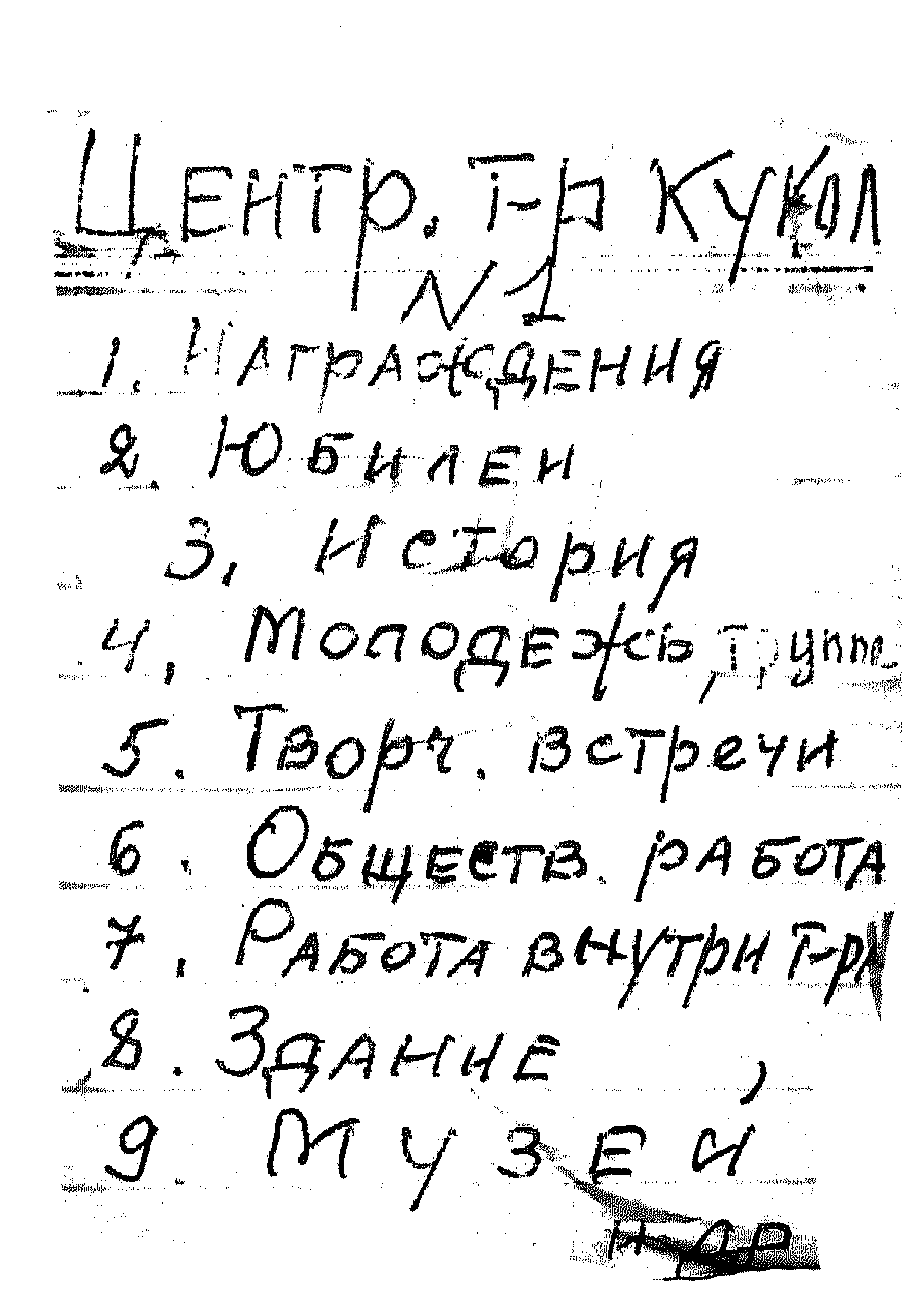 Центр. т-р кукол
N1
1. Награждения
2. Юбилеи
3. История
4. Молодежь, труппе
5. Творч. встречи
6. Обществ. работа
7. Работа внутри т-ра
8. Здание
9. Музей
и др